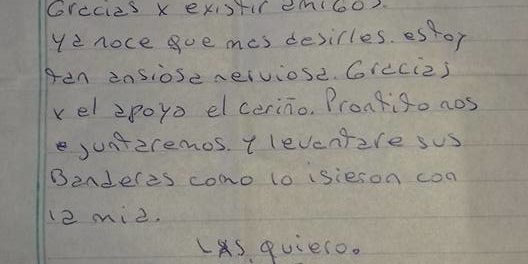 Gracias x existir amigos.
ya noce que mas desirles. estoy
tan ansiosa nerviosa. Gracias
x el apoyo el cariño. Prontito nos
juntaremos. y levantare sus
Banderas como lo isieron con
la mia.
LAS quiero.